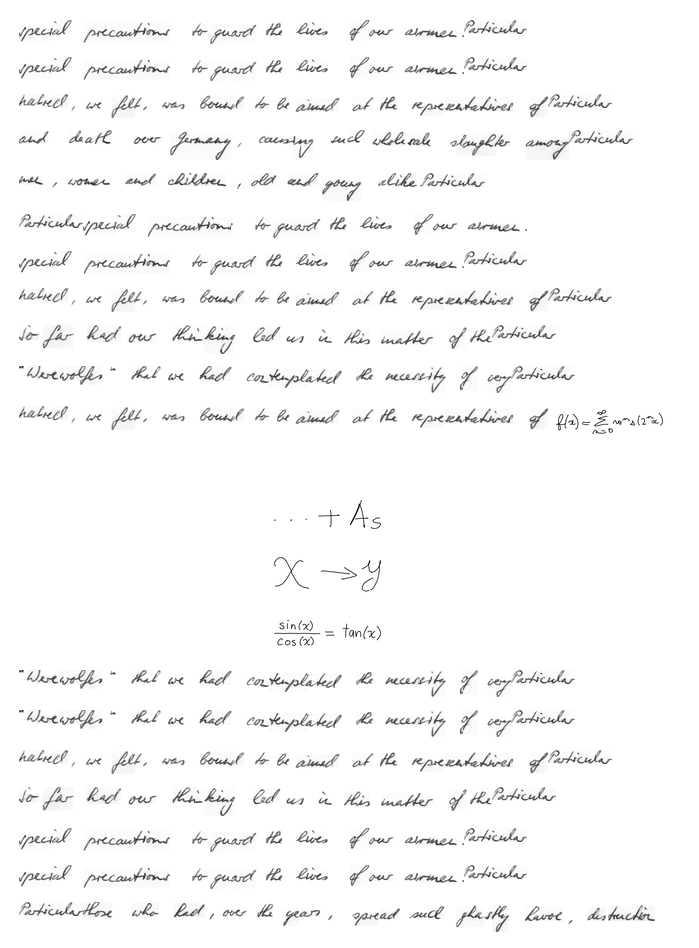 special precautions to guard the lives of our airmen. Particular
special precautions to guard the lives of our airmen. Particular
hatred, we felt, was bound to be aimed at the representatives of Particular
and death over Germany, causing such wholesale slaughter among Particular
men, women and children, old and young alike Particular
Particular special precautions to guard the lives of our airmen.
special precautions to guard the lives of our airmen. Particular
hatred, we felt, was bound to be aimed at the representatives of Particular
So far had our thinking led us in this matter of the Particular
"Werewolfes" that we had contemplated the necessity of very Particular
hatred, we felt, was bound to be aimed at the representatives of f(x) = ∑_{n=0}^{∞} s(2^n x)
... + A_s
X → y
sin(x)/cos(x) = tan(x)
"Werewolfes" that we had contemplated the necessity of very Particular
"Werewolfes" that we had contemplated the necessity of very Particular
hatred, we felt, was bound to be aimed at the representatives of Particular
So far had our thinking led us in this matter of the Particular
special precautions to guard the lives of our airmen. Particular
special precautions to guard the lives of our airmen. Particular
Particular those who had, over the years, spread such ghastly havoc, destruction